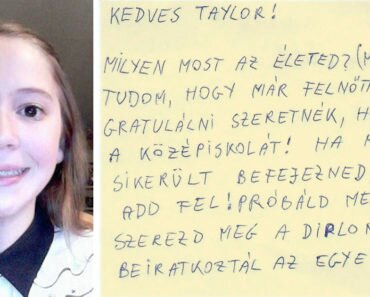 KEDVES TAYLOR!
MILYEN MOST AZ ÉLETED? (
TUDOM, HOGY MÁR FELNŐTT
GRATULÁLNI SZERETNÉK, H
A KÖZÉPISKOLÁT! HA
SIKERÜLT BEFEJEZNED
ADD FEL! PRÓBÁLD ME
SZEREZD MEG A DIPLO
BEIRATKOZTÁL AZ EGYE